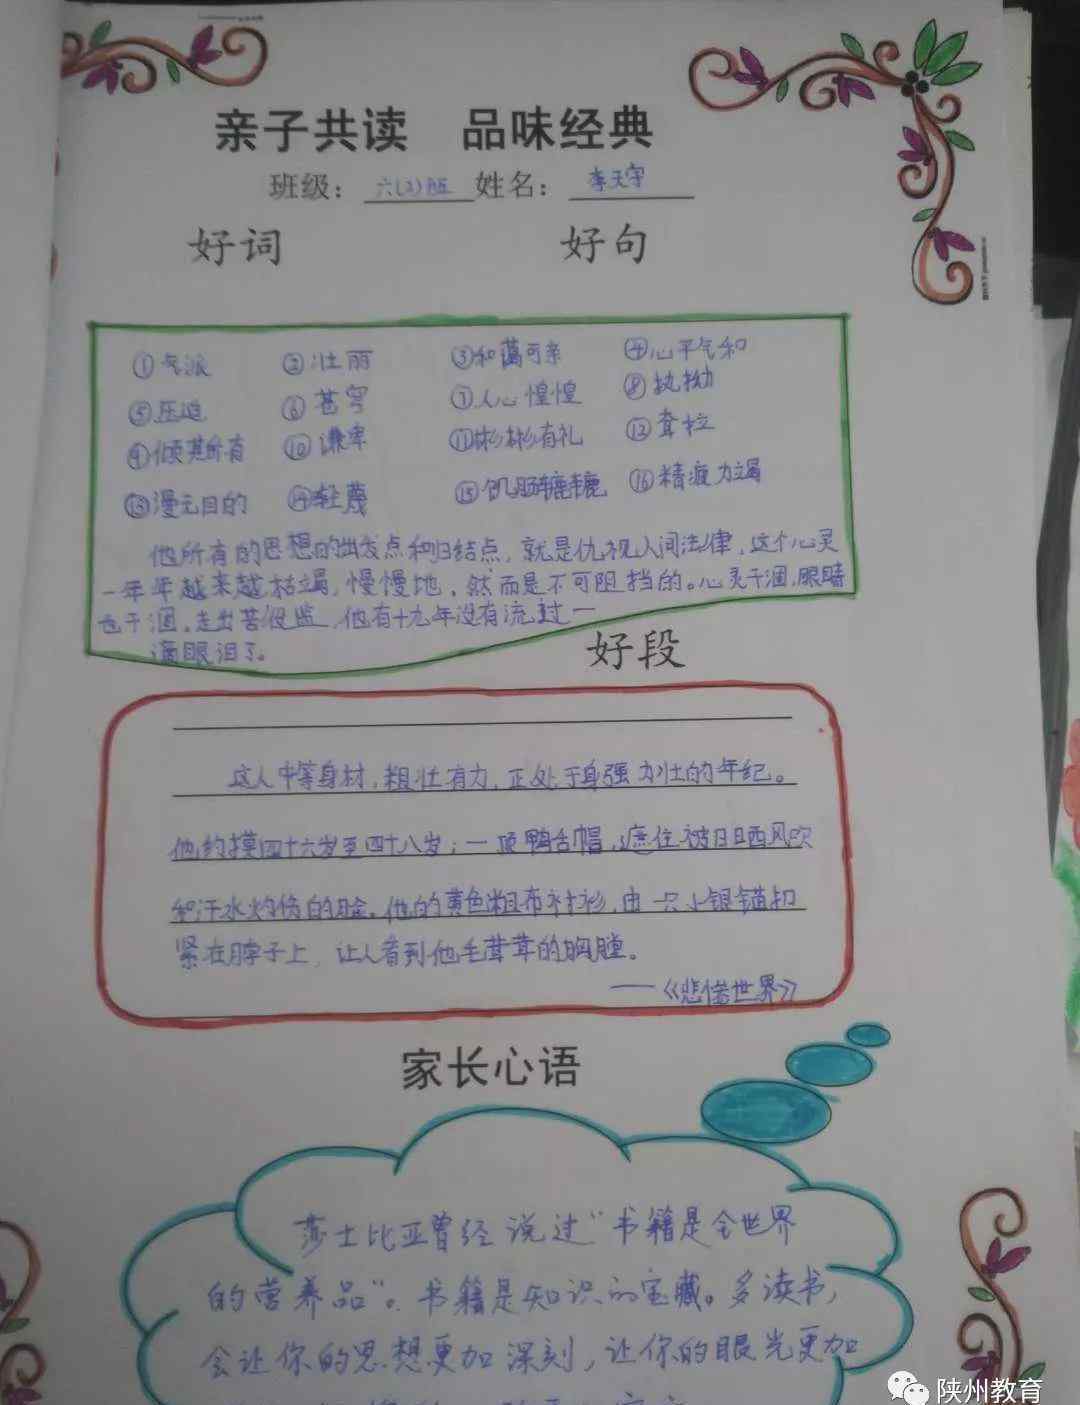 亲子共读 品味经典
班级：六(2)班 姓名：李天宇
好词 好句
①气派 ②壮丽 ③和蔼可亲 ④心平气和
⑤压迫 ⑥苍穹 ⑦人心惶惶 ⑧执拗
⑨倾其所有 ⑩谦卑 ⑪彬彬有礼 ⑫耷拉
⑬漫无目的 ⑭轻蔑 ⑮饥肠辘辘 ⑯精疲力竭
他所有的思想的出发点和归结点，就是仇视人间法律，这个心灵
一年年越来越枯竭，慢慢地，然而是不可阻挡的。心灵干涸，眼睛
也干涸。走出苦役监，他有十九年没有流过一
滴眼泪了。
好段
这人中等身材，粗壮有力，正处于身强力壮的年纪。
他约摸四十六岁至四十八岁；一顶鸭舌帽，遮住被日晒风吹
和汗水灼伤的脸。他的黄色粗布衬衫，由一只小银锚扣
紧在脖子上，让人看到他毛茸茸的胸膛。
——《悲惨世界》
家长心语
莎士比亚曾经说过“书籍是全世界
的营养品”。书籍是知识的宝藏。多读书，
会让你的思想更加深刻，让你的眼光更加
陕州教育